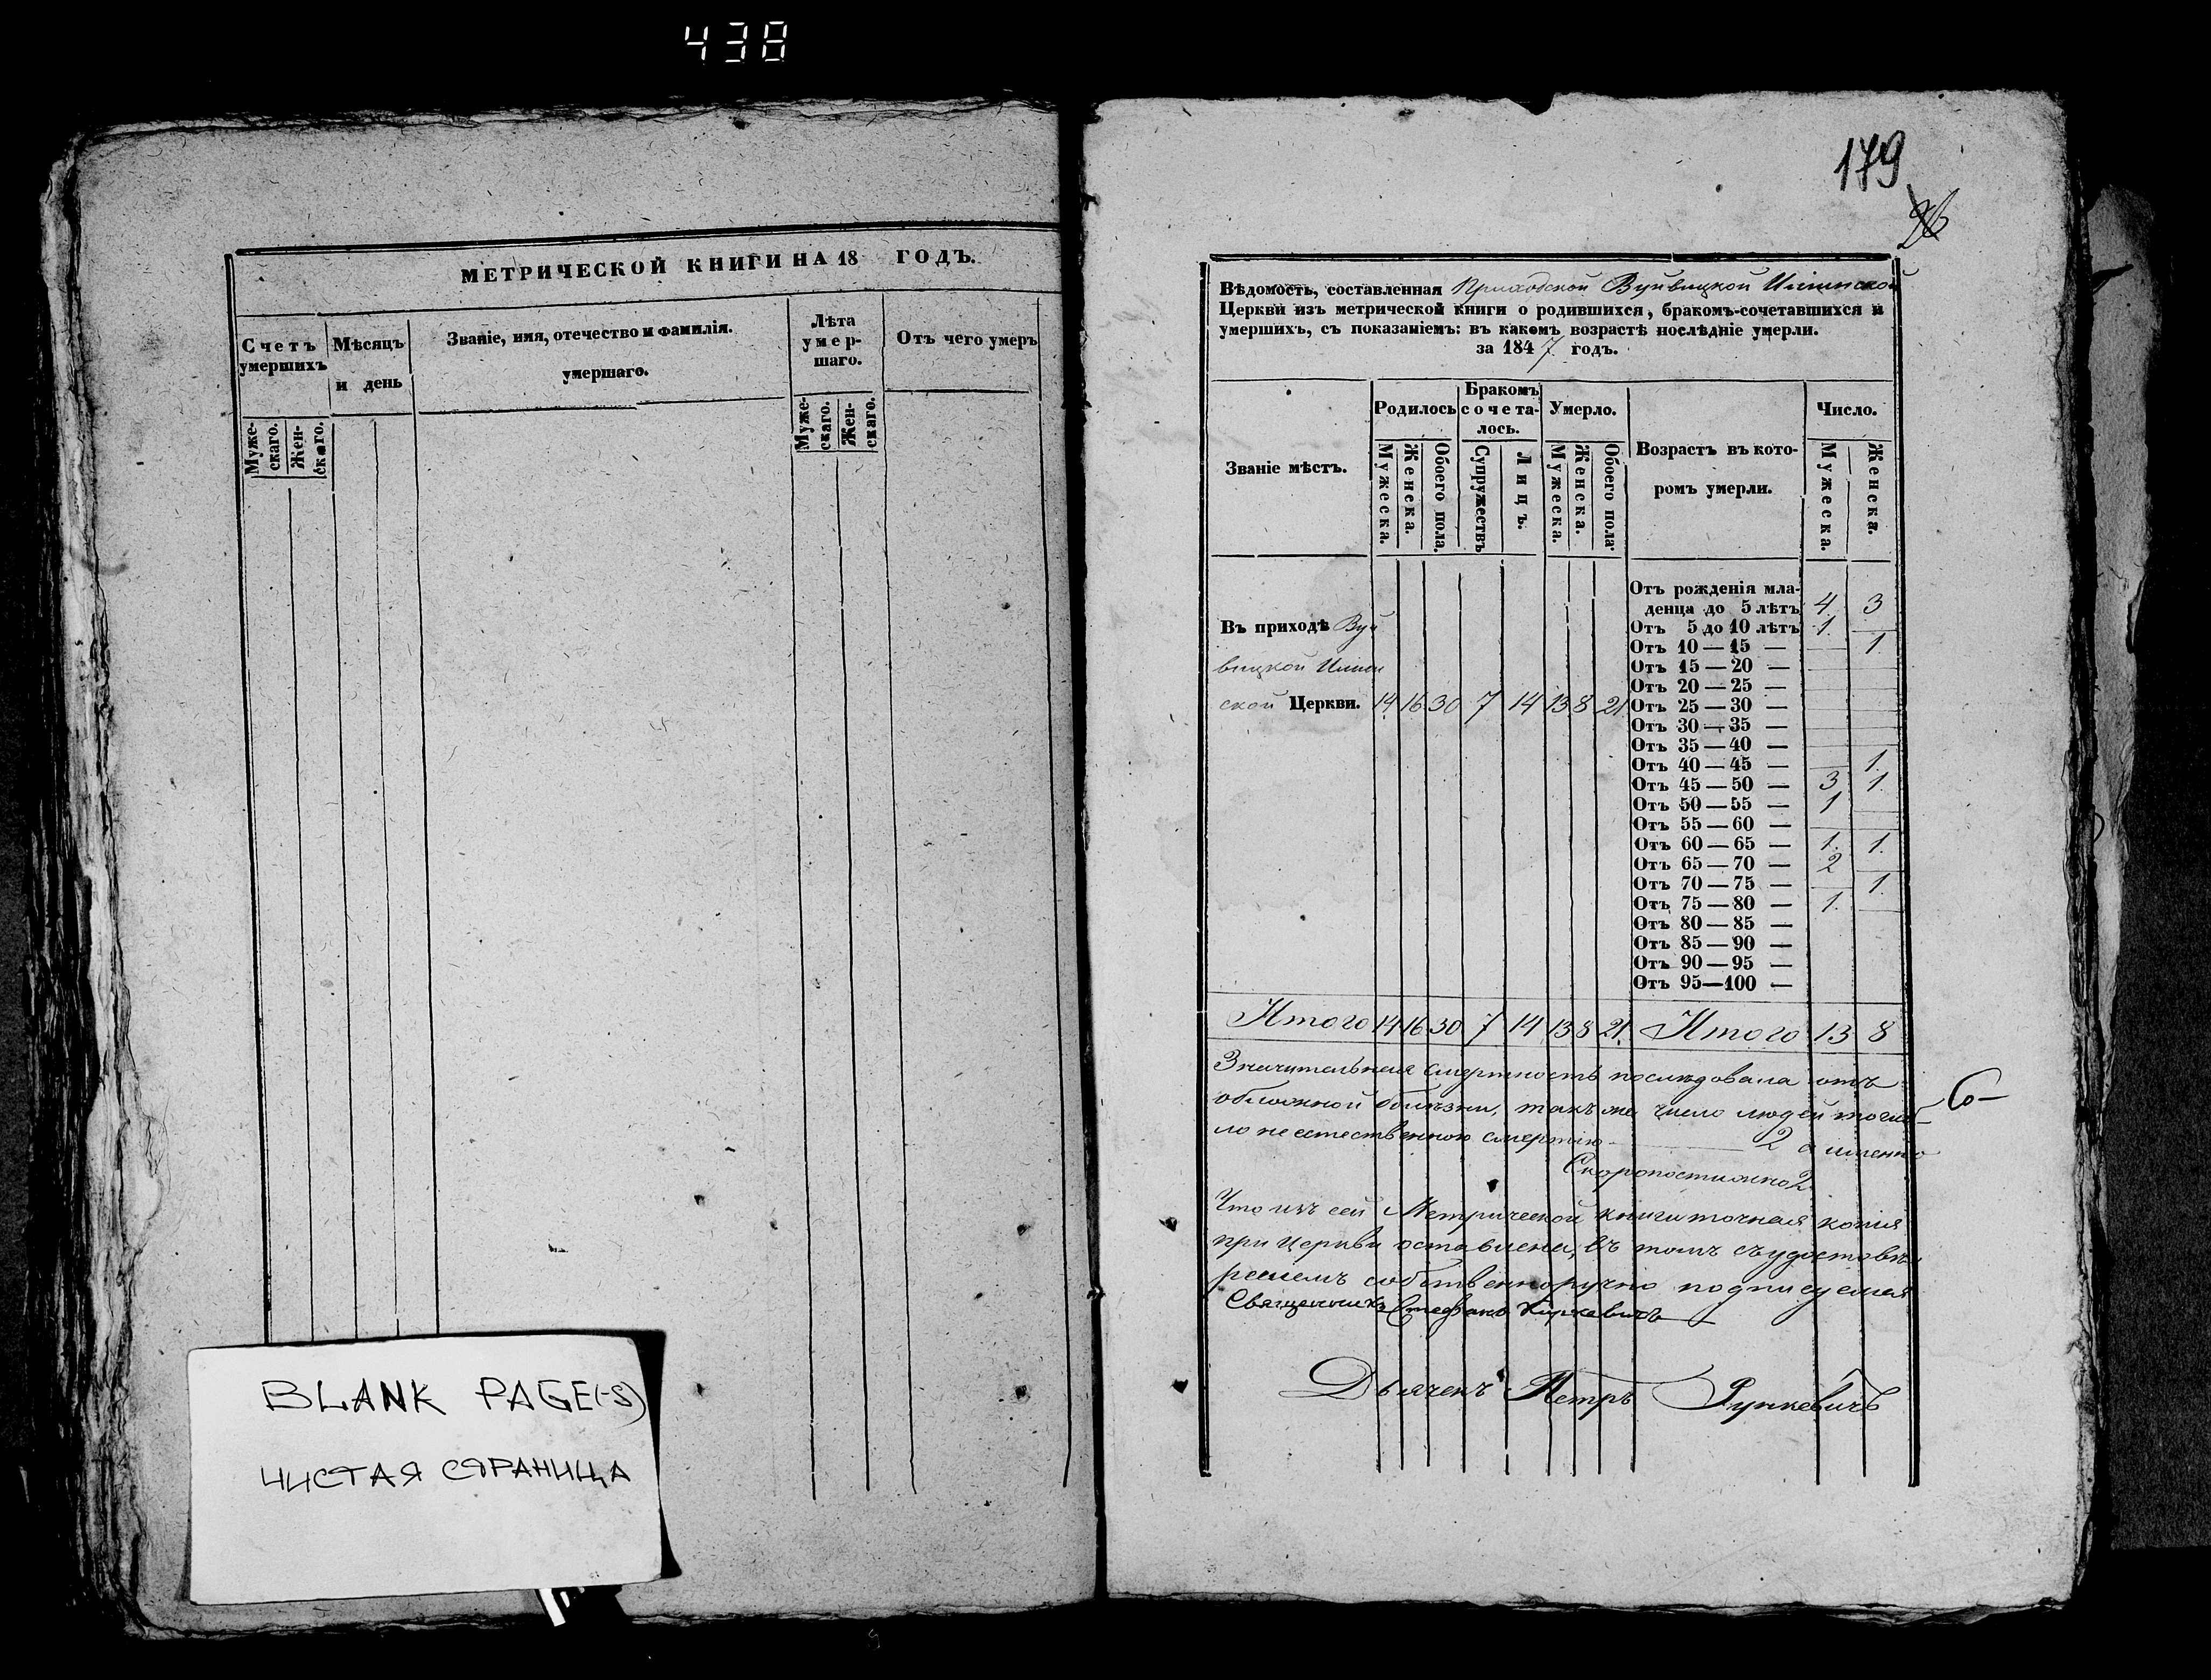 438
МЕТРИЧЕСКОЙ КНИГИ НА 18 ГОДЪ.
Счетъ умершихъ
Мѣсяцъ и день
Званіе, имя, отечество и фамилія.
умершаго.
Лѣта умер-шаго.
Отъ чего умеръ
Муже-скаго.
Жен-скаго.
Муже-скаго.
Жен-скаго.
BLANK PAGE(-S)
ЧИСТАЯ СТРАНИЦА
179
26
Вѣдомость, составленная Приходской Вуйвицкой
Церкви изъ метрической книги о родившихся, бракомъ-сочетавшихся и
умершихъ, съ показаніемъ: въ какомъ возрастѣ послѣдніе умерли.
за 1847 годъ.
Званіе мѣстъ.
Родилось
Бракомъ сочета-лось.
Умерло.
Возрастъ въ кото-
ромъ умерли.
Число.
Мужеска.
Женска.
Обоего пола.
Супружествъ
Лицъ.
Мужеска.
Женска.
Обоего пола.
Мужеска.
Женска.
Въ приходѣ Вуй
вицкой
ской Церкви. 14 16 30 7 14 13 8 21
Отъ рожденія мла-
денца до 5 лѣтъ 4. 3
Отъ 5 до 10 лѣтъ 1. —
Отъ 10 — 15 — — 1
Отъ 15 — 20 —
Отъ 20 — 25 —
Отъ 25 — 30 —
Отъ 30 — 35 —
Отъ 35 — 40 —
Отъ 40 — 45 — — 1.
Отъ 45 — 50 — 3 1.
Отъ 50 — 55 — 1 —
Отъ 55 — 60 —
Отъ 60 — 65 — 1. 1.
Отъ 65 — 70 — 2 —
Отъ 70 — 75 — — 1.
Отъ 75 — 80 — 1. —
Отъ 80 — 85 —
Отъ 85 — 90 —
Отъ 90 — 95 —
Отъ 95—100 —
Итого 14 16 30 7 14 13 8 21. Итого 13 8
Значительная смертность послѣдовала отъ
обложной болѣзни, также число людей погиб-
ло неестественною смертію 2 а именно
Скоропостижно 2
Что изъ сей Метрической книги точная копія
при Церкви оставлена, въ томъ съ удостовѣ-
реніемъ собственноручно подписуемся
Священникъ Стефанъ
Дьячекъ Петръ Рункевичъ